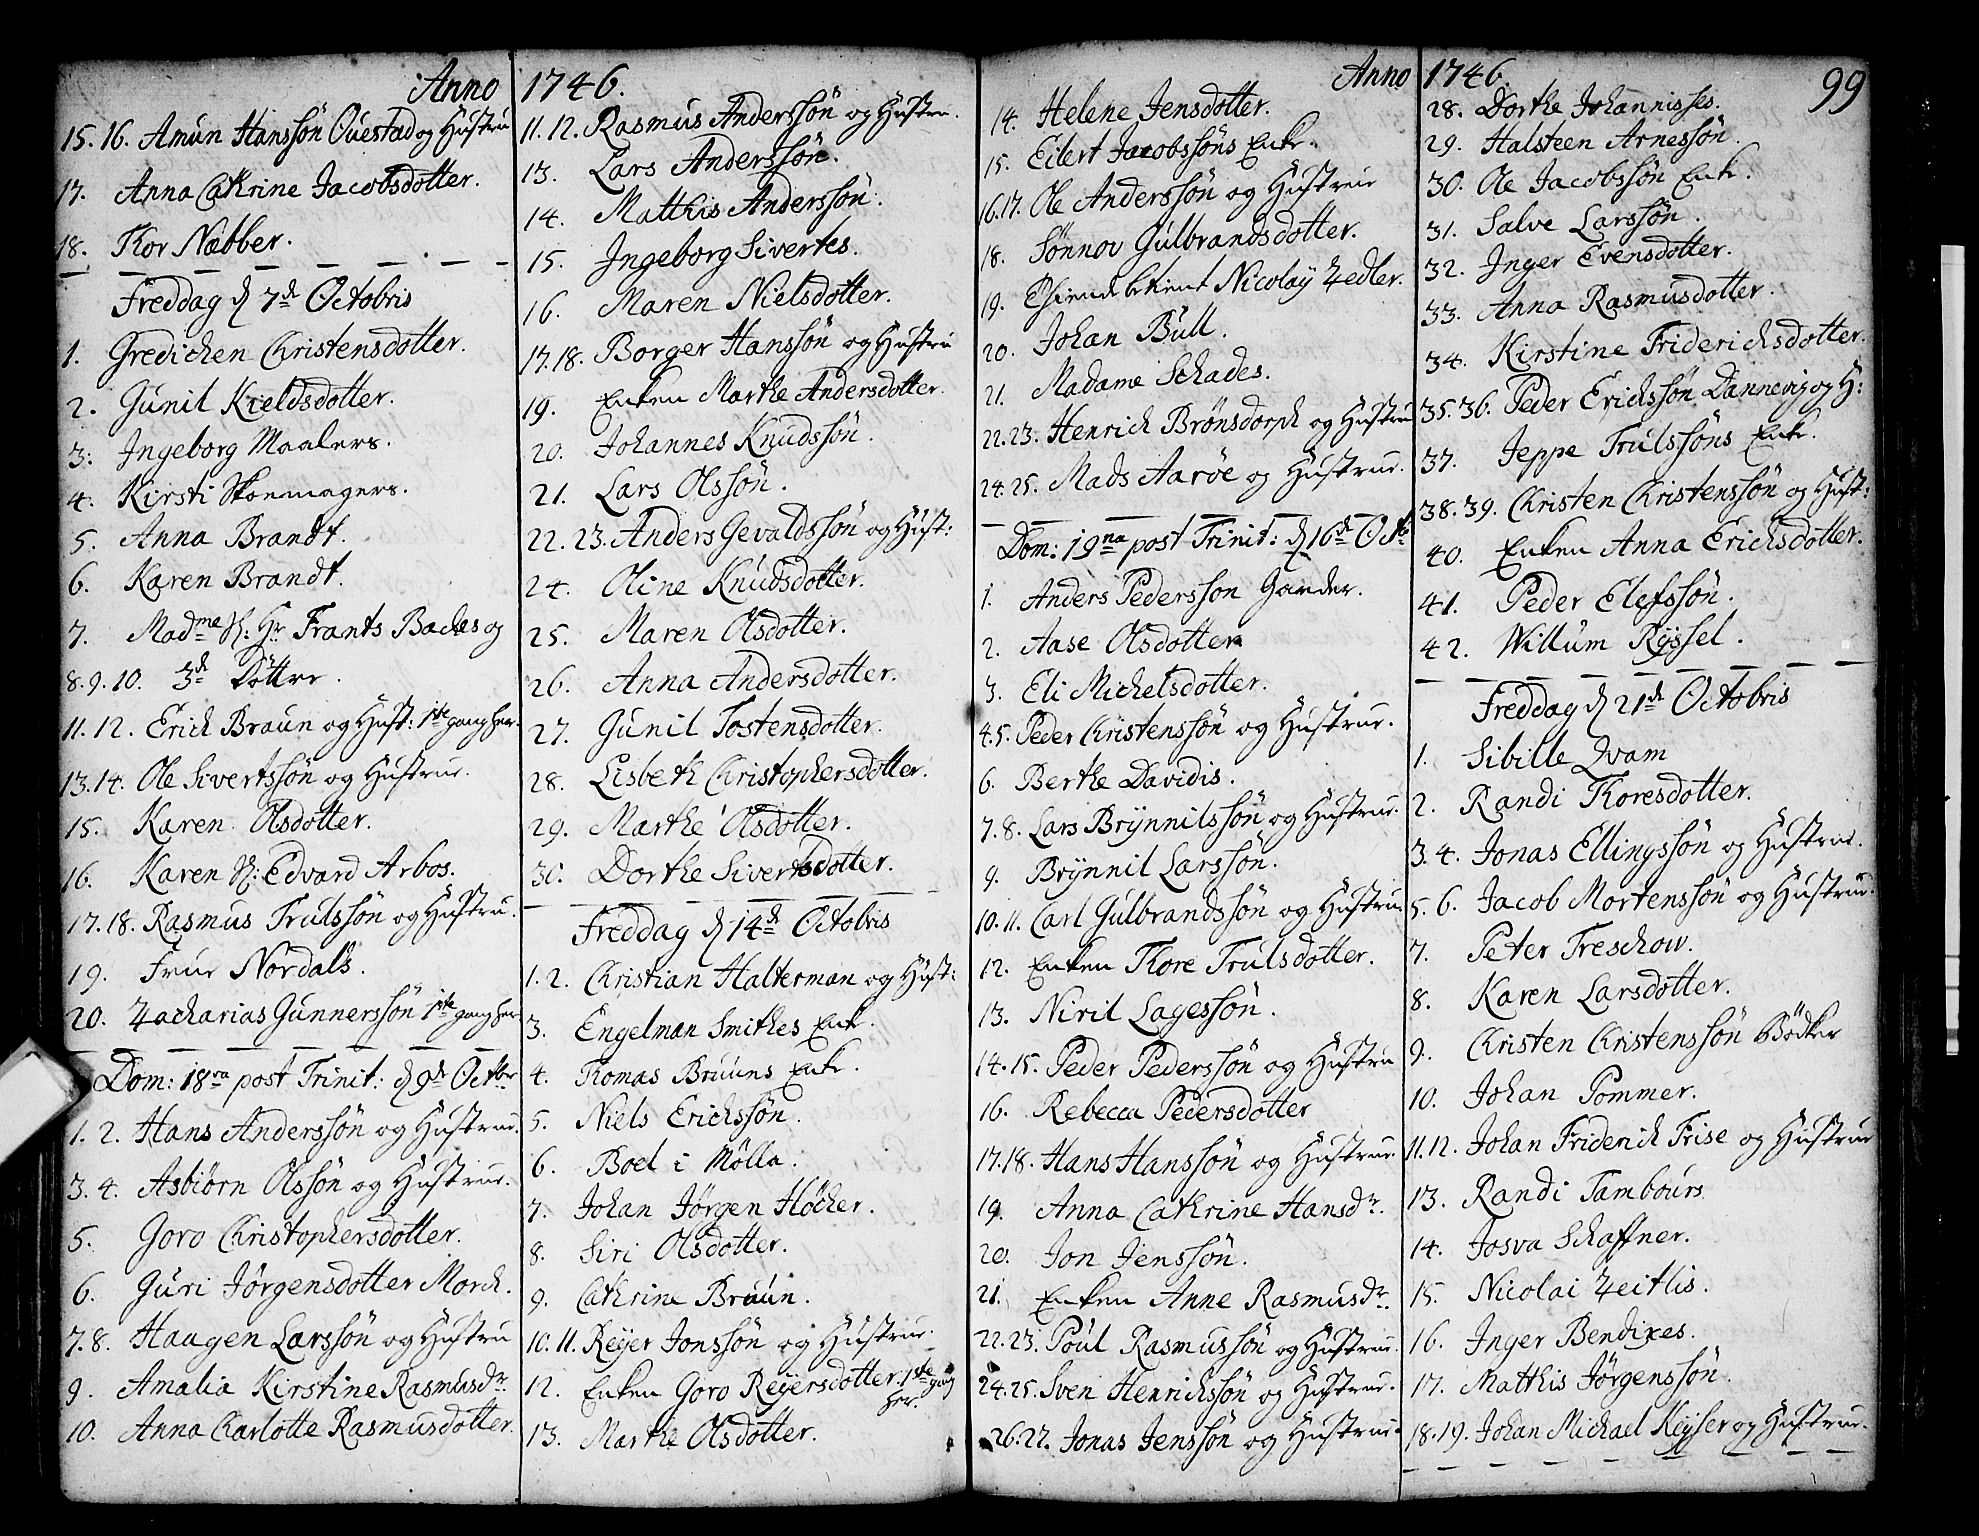 Anno 1746.
15. 16. Amun Hanssön Ouestad og Hustru
17. Anna Cathrine Jacobsdotter.
18. Thor Næbber.
Freddag d. 7de Octobris
1. Gredichen Christensdotter.
2. Gunil Kieldsdotter.
3. Ingeborg Maalers.
4. Kirsti Skomagers.
5. Anna Brandt.
6. Karen Brandt.
7. Madme Hr Frants Backes og
8. 9. 10. 3de Döttre.
11. 12. Erick Braun og Hust: 1ste gang her.
13. 14. Ole Sivertssön og Hustrue.
15. Karen Olsdotter.
16. Karen S: Edvard Arbos.
17. 18. Rasmus Trulssön og Hustru.
19. Frue Nordals.
20. Zacharias Gunnerssön 1ste gang her
Dom: 18va post Trinit: d. 9de Octbr
1. 2. Hans Anderssön og Hustrue.
3. 4. Asbiörn Olssön og Hustrue.
5. Goro Christophersdotter.
6. Guri Jörgensdotter Morch.
7. 8. Haagen Larssön og Hustru
9. Amalia Kirstine Rasmusdr.
10. Anna Charlotte Rasmusdotter.
11. 12. Rasmus Anderssön og Hustru.
13. Lars Anderssön.
14. Matthis Anderssön.
15. Ingeborg Sivertes.
16. Maren Nielsdotter.
17. 18. Borger Hanssön og Hustru
19. Enken Marthe Andersdotter.
20. Johannes Knudssön.
21. Lars Olssön.
22. 23. Anders Gevaldssön og Hust:
24. Oline Knudsdotter.
25. Maren Olsdotter.
26. Anna Andersdotter.
27. Gunil Tostensdotter.
28. Lisbeth Christophersdotter.
29. Marthe Olsdotter.
30. Dorthe Sivertsdotter.
Freddag d. 14de Octobris
1. 2. Christian Halterman og Hust:
3. Engelman Smithes Enk.
4. Thomas Bruuns Enk.
5. Niels Erichssön.
6. Boel i Mölla.
7. Johan Jörgen Höcker.
8. Siri Olsdotter.
9. Cathrine Bruun.
10. 11. Reyer Jonssön og Hustrue.
12. Enken Goro Reyersdotter. 1ste gang
her.
13. Marthe Olsdotter.
Anno 1746. 99
14. Helene Jensdotter.
15. Eilert Jacobssöns Enk.
16. 17. Ole Anderssön og Hustrue
18. Sönnov Gulbrandsdotter.
19. Nicolay Zedler.
20. Johan Bull.
21. Madame Schades.
22. 23. Henrich Brönsdorph og Hustru
24. 25. Mads Aaröe og Hustrue.
Dom: 19na post Trinit: d. 16de Octb
1. Anders Pedersson Garder.
2. Aase Olsdotter
3. Eli Michelsdotter.
4. 5. Peder Christenssön og Hustrue.
6. Berthe Davidis.
7. 8. Lars Brynnilssön og Hustrue.
9. Brynnil Larssön.
10. 11. Carl Gulbrandssön og Hustru.
12. Enken Thore Trulsdotter.
13. Niril Lagessön.
14. 15. Peder Pederssön og Hustru
16. Rebecca Pedersdotter
17. 18. Hans Hanssön og Hustrue.
19. Anna Cathrine Hansdr.
20. Jon Jenssön.
21. Enken Anne Rasmusdr.
22. 23. Poul Rasmussön og Hustrue.
24. 25. Sven Henrichssön og Hustrue.
26. 27. Jonas Jenssön og Hustrue.
28. Dorthe Johannisses.
29. Halsteen Arnessön.
30. Ole Jacobssön Enk.
31. Salve Larssön.
32. Inger Evensdotter.
33. Anna Rasmusdotter.
34. Kirstine Friderichsdotter.
35. 36. Peder Erichssön Dannevig og H:
37. Jeppe Trulssöns Enk.
38. 39. Christen Christenssön og Hust:
40. Enken Anna Erichsdotter.
41. Peder Elefssön.
42. Willum Ryssel.
Freddag d. 21de Octobris
1. Sibille Qvam
2. Randi Thoresdotter.
3. 4. Jonas Ellingssön og Hustrue.
5. 6. Jacob Mortenssön og Hustrue.
7. Peter Treschow.
8. Karen Larsdotter.
9. Christen Christenssön Bödker
10. Johan Pommer.
11. 12. Johan Friderich Frise og Hustrue
13. Randi Tambours
14. Josva Schaffner.
15. Nicolai Zeitlis.
16. Inger Bendixes.
17. Matthis Jörgenssön.
18. 19. Johan Michael Keyser og Hustrue.